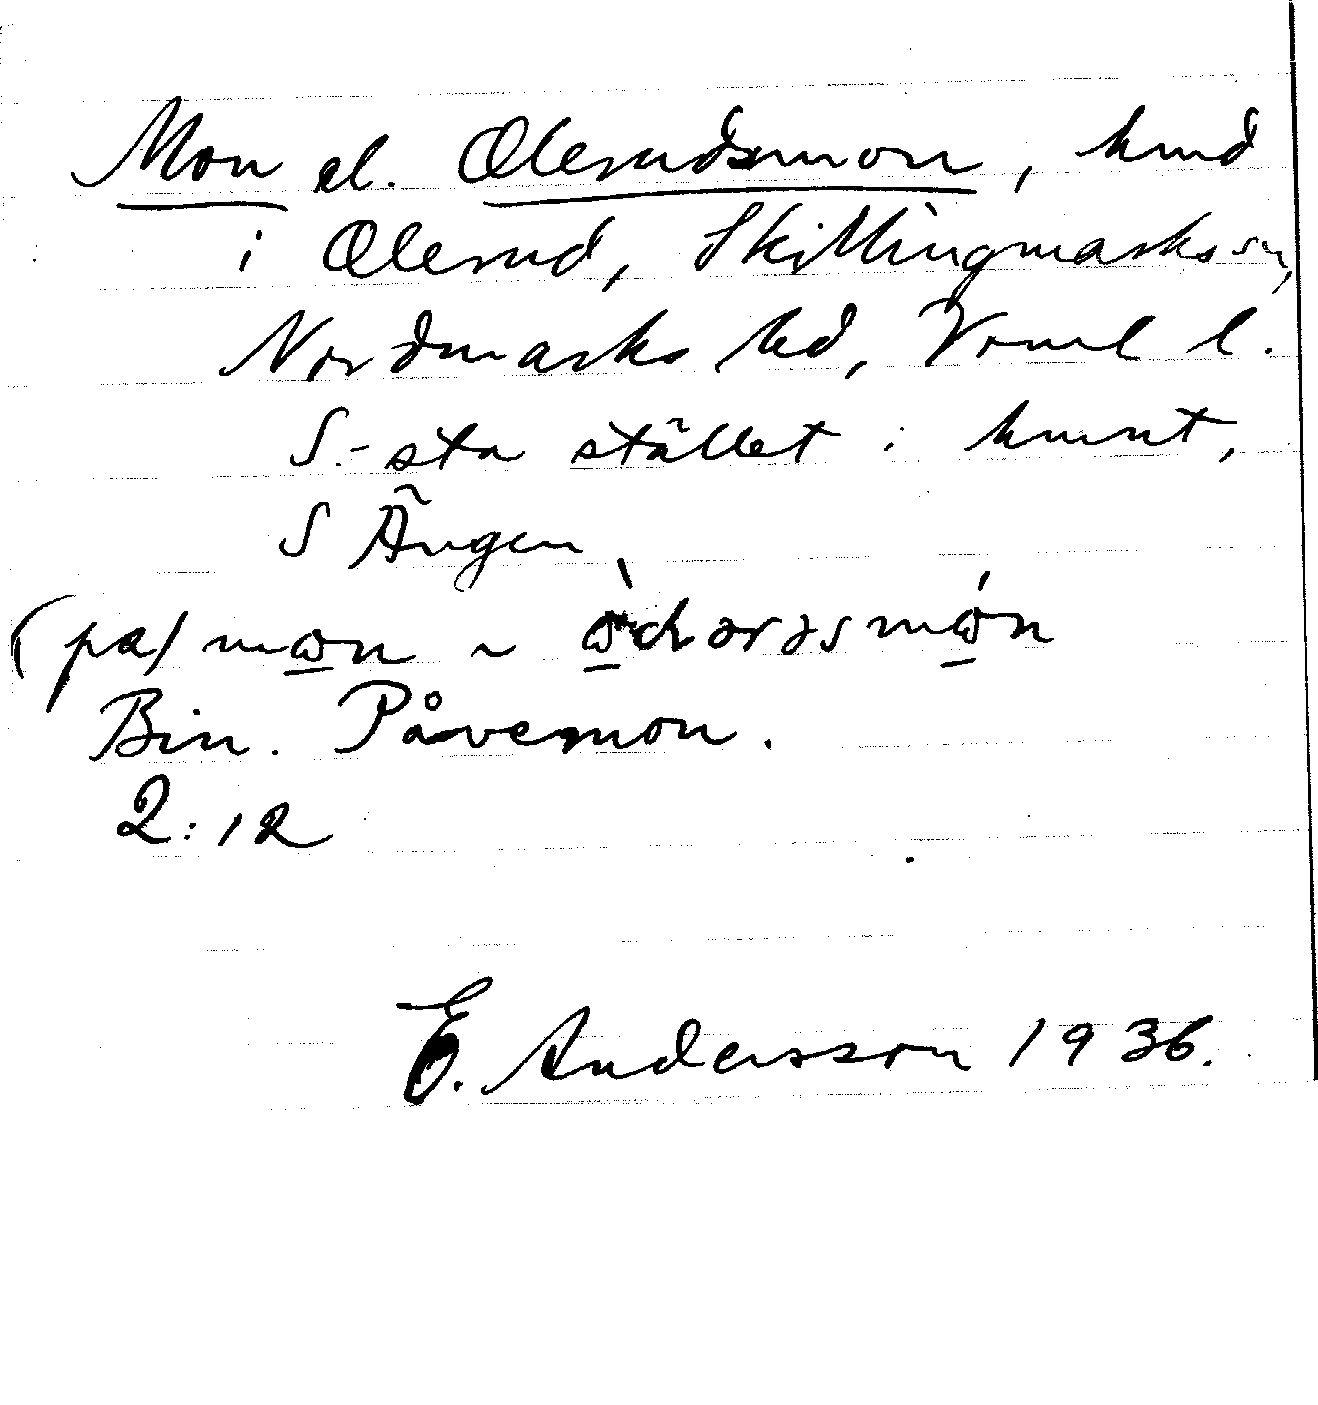 Mon el. Olerudsmon, hmd
i Olerud, Skillingmarks sn,
Nordmarks hd, Vrml l.
S.-sta stället i hmnt,
S Ängen
(pa) mωn ~
Bin. Påvemon.
2:12
E. Andersson 1936.